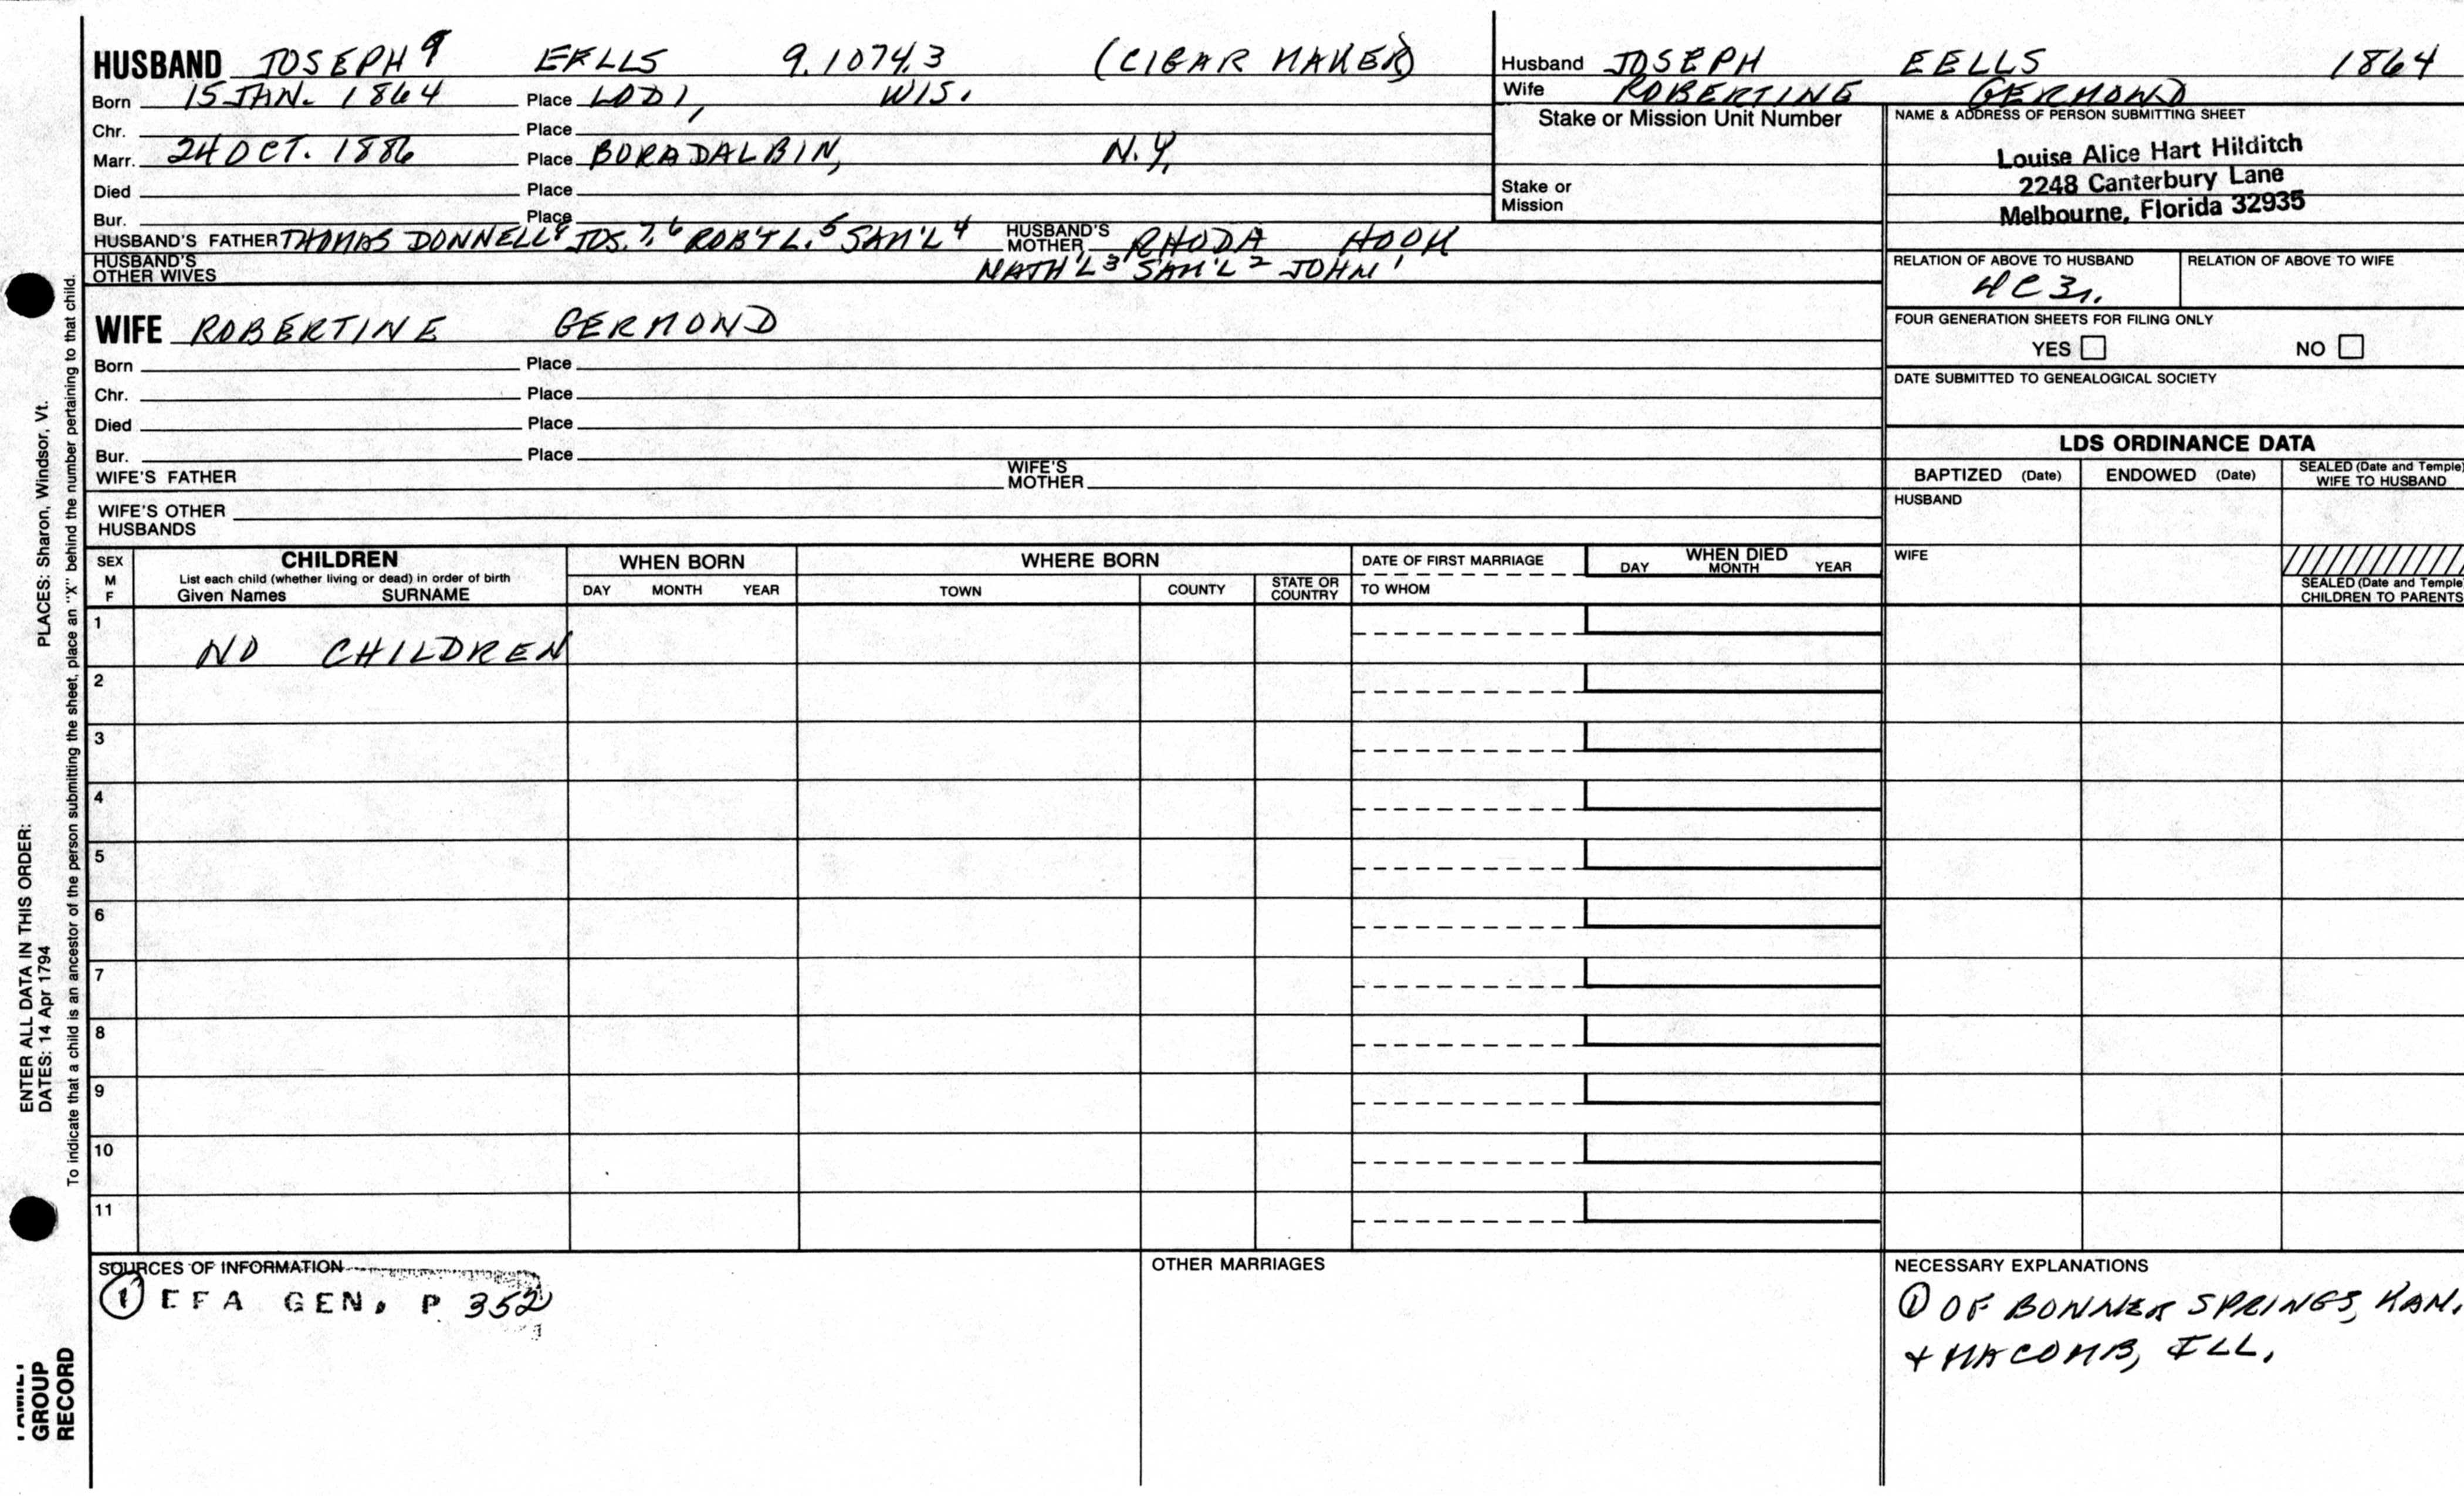 HUSBAND JOSEPH 9 EELLS 9.1074.3 (CIGAR MAKER)
Born 15 JAN. 1864 Place LODI, WIS.
Chr. Place
Marr. 24 OCT. 1886 Place BORADALBIN, N.Y.
Died Place
Bur. Place
HUSBAND'S FATHER THOMAS DONNELL 8 JOS. 7, 6 ROB'T L. 5 SAM'L 4 HUSBAND'S MOTHER RHODA HOOK
HUSBAND'S OTHER WIVES NATH'L 3 SAM'L 2 JOHN 1
Husband JOSEPH EELLS 1864
Wife ROBERTINE GERMOND
Stake or Mission Unit Number
Stake or
Mission
NAME & ADDRESS OF PERSON SUBMITTING SHEET
Louise Alice Hart Hilditch
2248 Canterbury Lane
Melbourne, Florida 32935
RELATION OF ABOVE TO HUSBAND RELATION OF ABOVE TO WIFE
4C3r.
FOUR GENERATION SHEETS FOR FILING ONLY
YES NO
DATE SUBMITTED TO GENEALOGICAL SOCIETY
WIFE ROBERTINE GERMOND
Born Place
Chr. Place
Died Place
Bur. Place
WIFE'S FATHER WIFE'S MOTHER
WIFE'S OTHER
HUSBANDS
LDS ORDINANCE DATA
BAPTIZED (Date) ENDOWED (Date) SEALED (Date and Temple) WIFE TO HUSBAND
HUSBAND
WIFE
SEALED (Date and Temple
CHILDREN TO PARENTS
SEX
M
F
CHILDREN
List each child (whether living or dead) in order of birth
Given Names SURNAME
WHEN BORN
DAY MONTH YEAR
WHERE BORN
TOWN COUNTY STATE OR COUNTRY
DATE OF FIRST MARRIAGE
TO WHOM
WHEN DIED
DAY MONTH YEAR
1 NO CHILDREN
2
3
4
5
6
7
8
9
10
11
SOURCES OF INFORMATION
① EFA GEN. P 352
OTHER MARRIAGES
NECESSARY EXPLANATIONS
① OF BONNER SPRINGS, KAN.
+ MACOMB, ILL.
ENTER ALL DATA IN THIS ORDER:
DATES: 14 Apr 1794 PLACES: Sharon, Windsor, Vt.
To indicate that a child is an ancestor of the person submitting the sheet, place an "X" behind the number pertaining to that child.
GROUP
RECORD